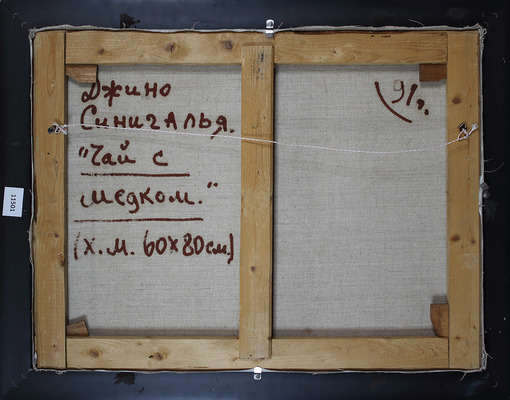 Джино
Синигалья.
"Чай с
медком."
(х.м. 60х80см.)
91г.
11501